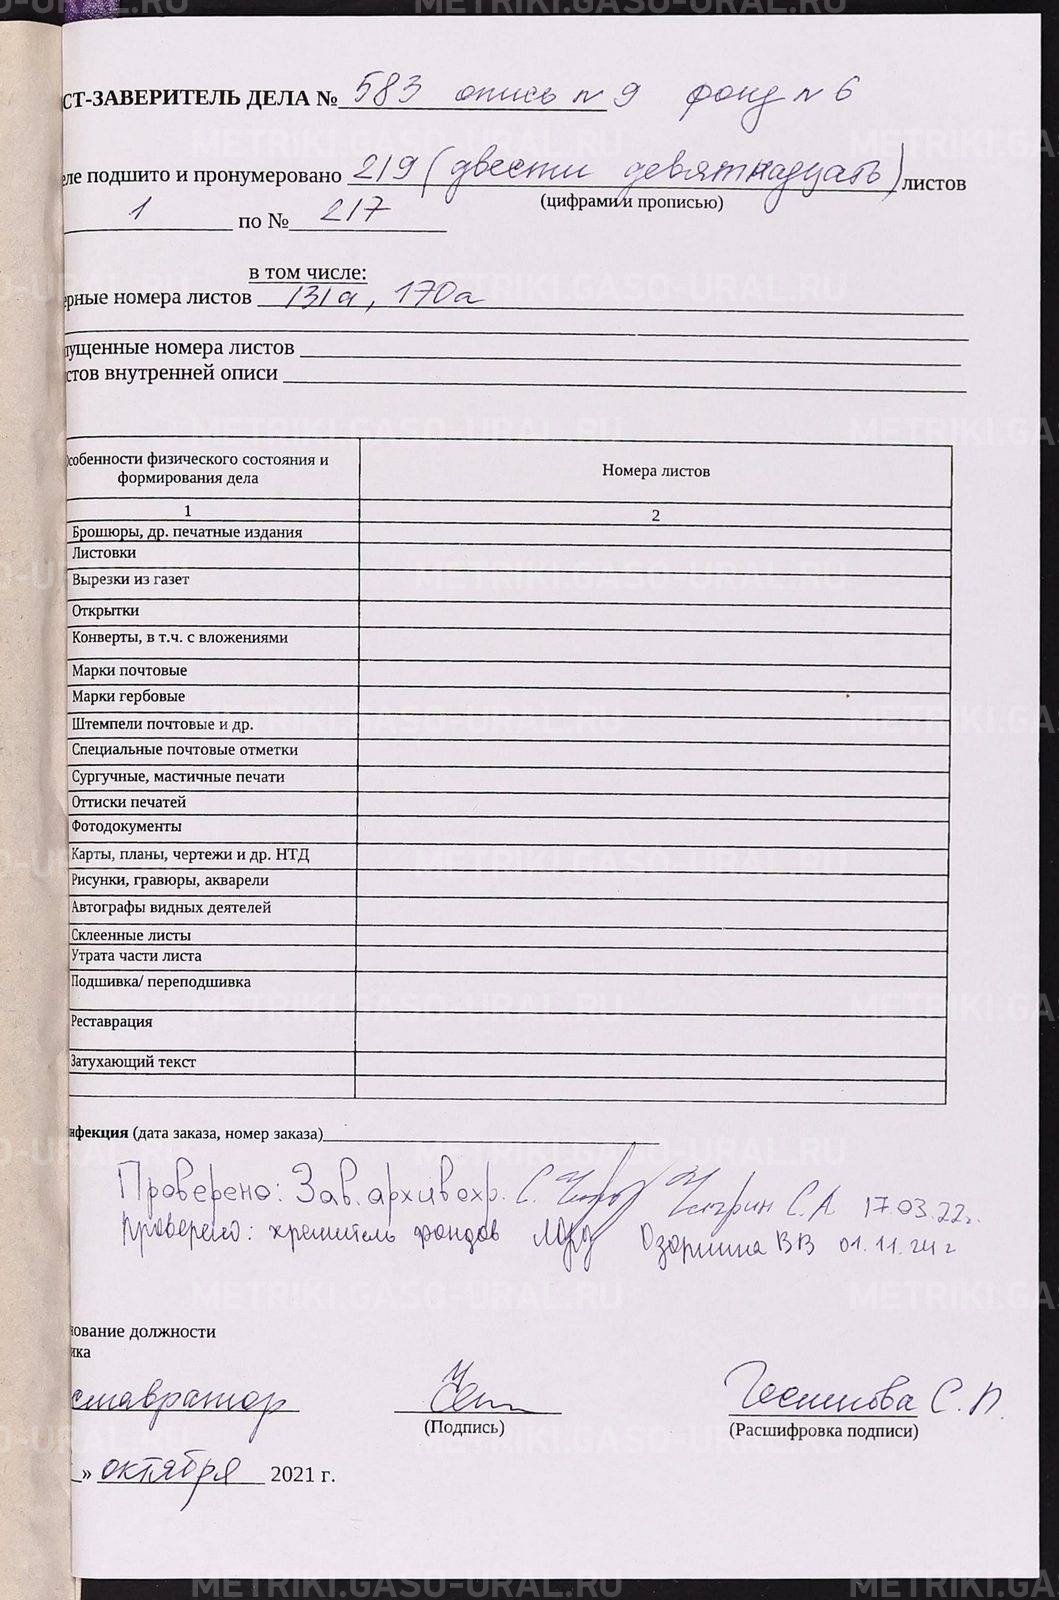 СТ-ЗАВЕРИТЕЛЬ ДЕЛА № 583 опись № 9 фонд № 6
еле подшито и пронумеровано 219 (двести девятнадцать) листов
(цифрами и прописью)
1 по № 217
в том числе:
ерные номера листов 131а, 170а
пущенные номера листов
стов внутренней описи
Особенности физического состояния и формирования дела
Номера листов
1
2
Брошюры, др. печатные издания
Листовки
Вырезки из газет
Открытки
Конверты, в т.ч. с вложениями
Марки почтовые
Марки гербовые
Штемпели почтовые и др.
Специальные почтовые отметки
Сургучные, мастичные печати
Оттиски печатей
Фотодокументы
Карты, планы, чертежи и др. НТД
Рисунки, гравюры, акварели
Автографы видных деятелей
Склеенные листы
Утрата части листа
Подшивка/ переподшивка
Реставрация
Затухающий текст
нфекция (дата заказа, номер заказа)
Проверено: Зав. архивохр. С. Чагрин С.А. 17.03.22г.
Проверено: хранитель фондов Озорнина ВВ 01.11.24 г
нование должности
ика
ставратор
(Подпись)
С. П.
(Расшифровка подписи)
» октября 2021 г.
METRIKI.GASO-URAL.RU